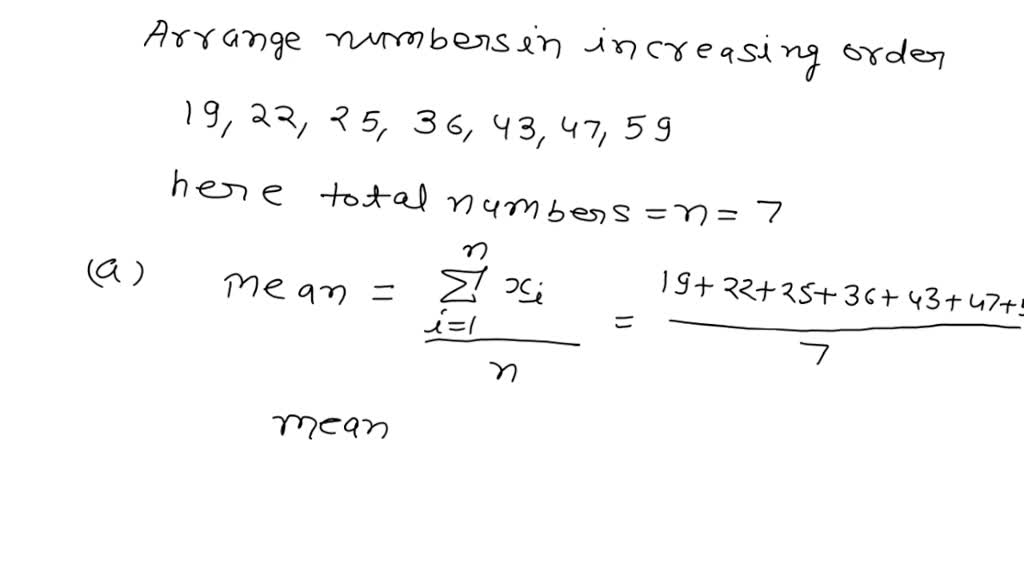 Arrange numbers in increasing order
19, 22, 25, 36, 43, 47, 59
here total numbers = n = 7
(a) mean = \frac{\sum_{i=1}^{n} x_i}{n} = \frac{19+22+25+36+43+47+5}{7}
mean